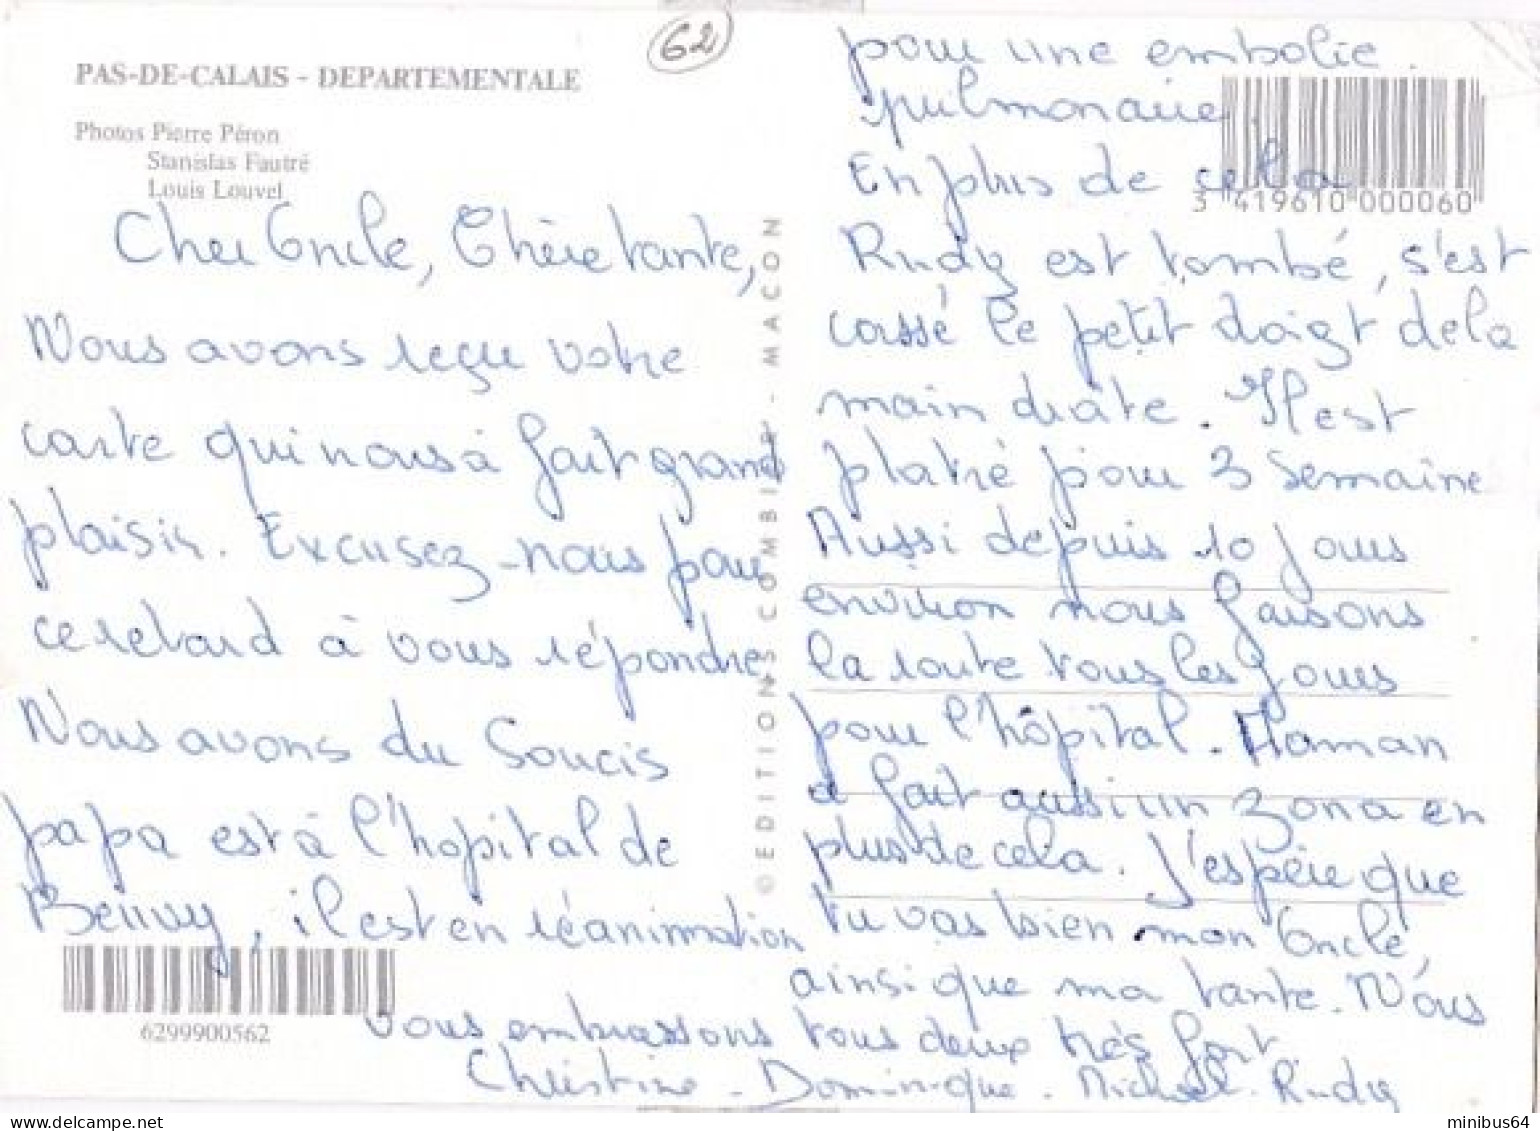 62
PAS-DE-CALAIS - DEPARTEMENTALE
Photos Pierre Péron
Stanislas Fautré
Louis Louvel
Cher Oncle, Chère tante,
Nous avons reçu votre
carte qui nous à fait grand
plaisir. Excusez-nous pour
ce retard à vous répondre
Nous avons du Soucis
papa est à l'hopital de
Beuvry, il est en réanimation
6299900562
© EDITIONS COMBIER - MACON
pour une embolie
pulmonaire.
3 419610 000060
En plus de cela
Rudy est tombé, s'est
cassé le petit doigt de la
main droite. Il est
platré pour 3 Semaine
Aussi depuis 10 jours
environ nous faisons
la route tous les jours
pour l'hôpital. Maman
a fait aussi un zona en
plus de cela. J'espère que
tu vas bien mon Oncle,
ainsi que ma tante. Nous
vous embrassons tous deux très fort
Christine - Dominique - Michael - Rudy
minibus64